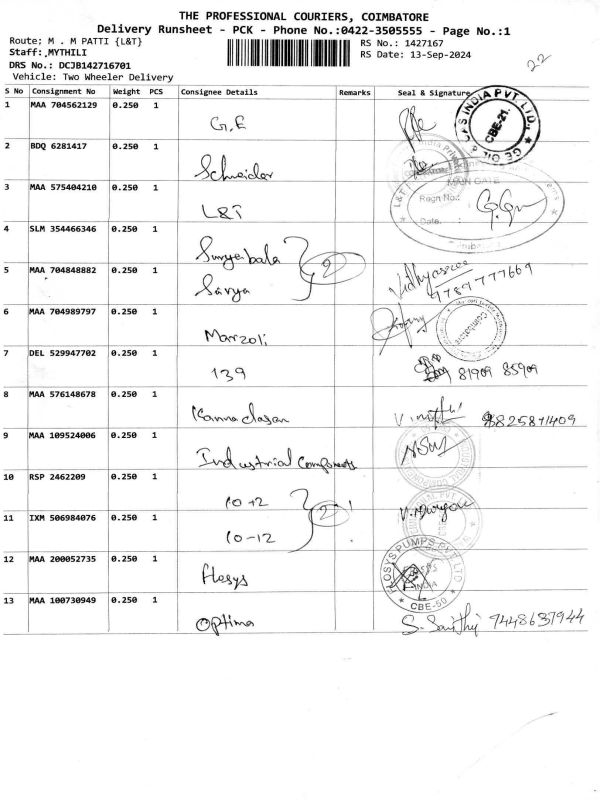 THE PROFESSIONAL COURIERS, COIMBATORE
Delivery Runsheet - PCK - Phone No.:0422-3505555 - Page No.:1
Route: M . M PATTI {L&T}
RS No.: 1427167
Staff: MYTHILI
RS Date: 13-Sep-2024
DRS No.: DCJB142716701
Vehicle: Two Wheeler Delivery
22
S No Consignment No Weight PCS Consignee Details Remarks Seal & Signature
1 MAA 704562129 0.250 1 G.E
INDIA PVT. LTD. CBE-21. GE OIL
2 BDQ 6281417 0.250 1 Schneider
3 MAA 575404210 0.250 1 L&T
L&T MAIN GATE
Regn No.:
Date. :
Coimbatore
4 SLM 354466346 0.250 1 Suryabala
2
5 MAA 704848882 0.250 1 Sarya Vidhyasree 9789777669
6 MAA 704989797 0.250 1 Marzoli
Coimbatore
7 DEL 529947702 0.250 1 139 81909 85909
8 MAA 576148678 0.250 1 Kannadasan
9 MAA 109524006 0.250 1 Industrial Components
10 RSP 2462209 0.250 1 10+2
2
11 IXM 506984076 0.250 1 10-12 V. Murugan
12 MAA 200052735 0.250 1 Flosys
FLOSYS PUMPS PVT LTD INDIA CBE-50
13 MAA 100730949 0.250 1 Optima S. Santhi 9448637944